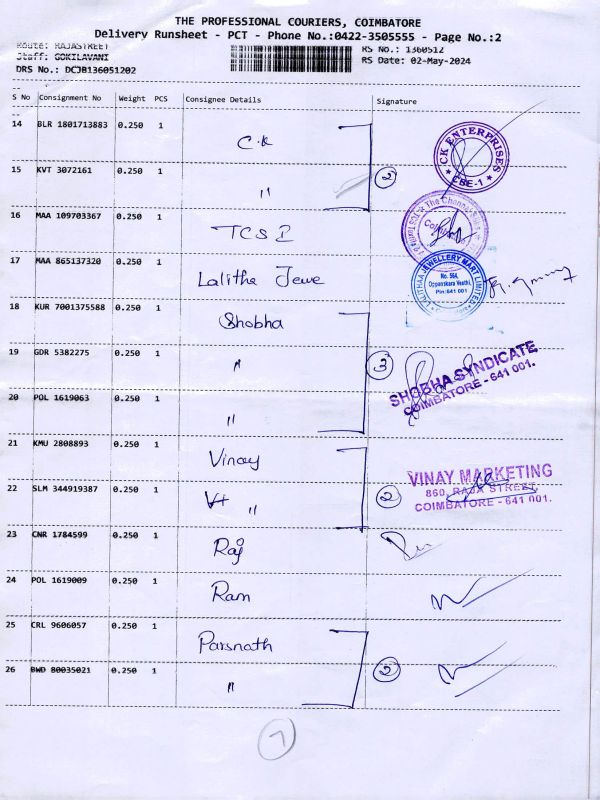 THE PROFESSIONAL COURIERS, COIMBATORE
Delivery Runsheet - PCT - Phone No.:0422-3505555 - Page No.:2
Route: RAJASTREET
RS No.: 1360512
Staff: GOKILAVANI
RS Date: 02-May-2024
DRS No.: DCJB136051202
S No Consignment No Weight PCS Consignee Details Signature
14 BLR 1801713883 0.250 1 C.K
CK ENTERPRISES
★ CBE-1 ★
15 KVT 3072161 0.250 1 "
2
16 MAA 109703367 0.250 1 TCS I
17 MAA 865137320 0.250 1 Lalitha Jewe
LALITHAA JEWELLERY MART LIMITED
No. 564,
Oppanakara Veethi,
Pin:641 001
18 KUR 7001375588 0.250 1 Shobha
19 GDR 5382275 0.250 1 "
3
SHOBHA SYNDICATE
COIMBATORE - 641 001.
20 POL 1619063 0.250 1 "
21 KMU 2808893 0.250 1 Vinay
VINAY MARKETING
860, RAJA STREET,
COIMBATORE - 641 001.
22 SLM 344919387 0.250 1 "
2
23 CNR 1784599 0.250 1 Raj
24 POL 1619009 0.250 1 Ram
25 CRL 9606057 0.250 1 Parsnath
26 BWD 80035021 0.250 1 "
2
7